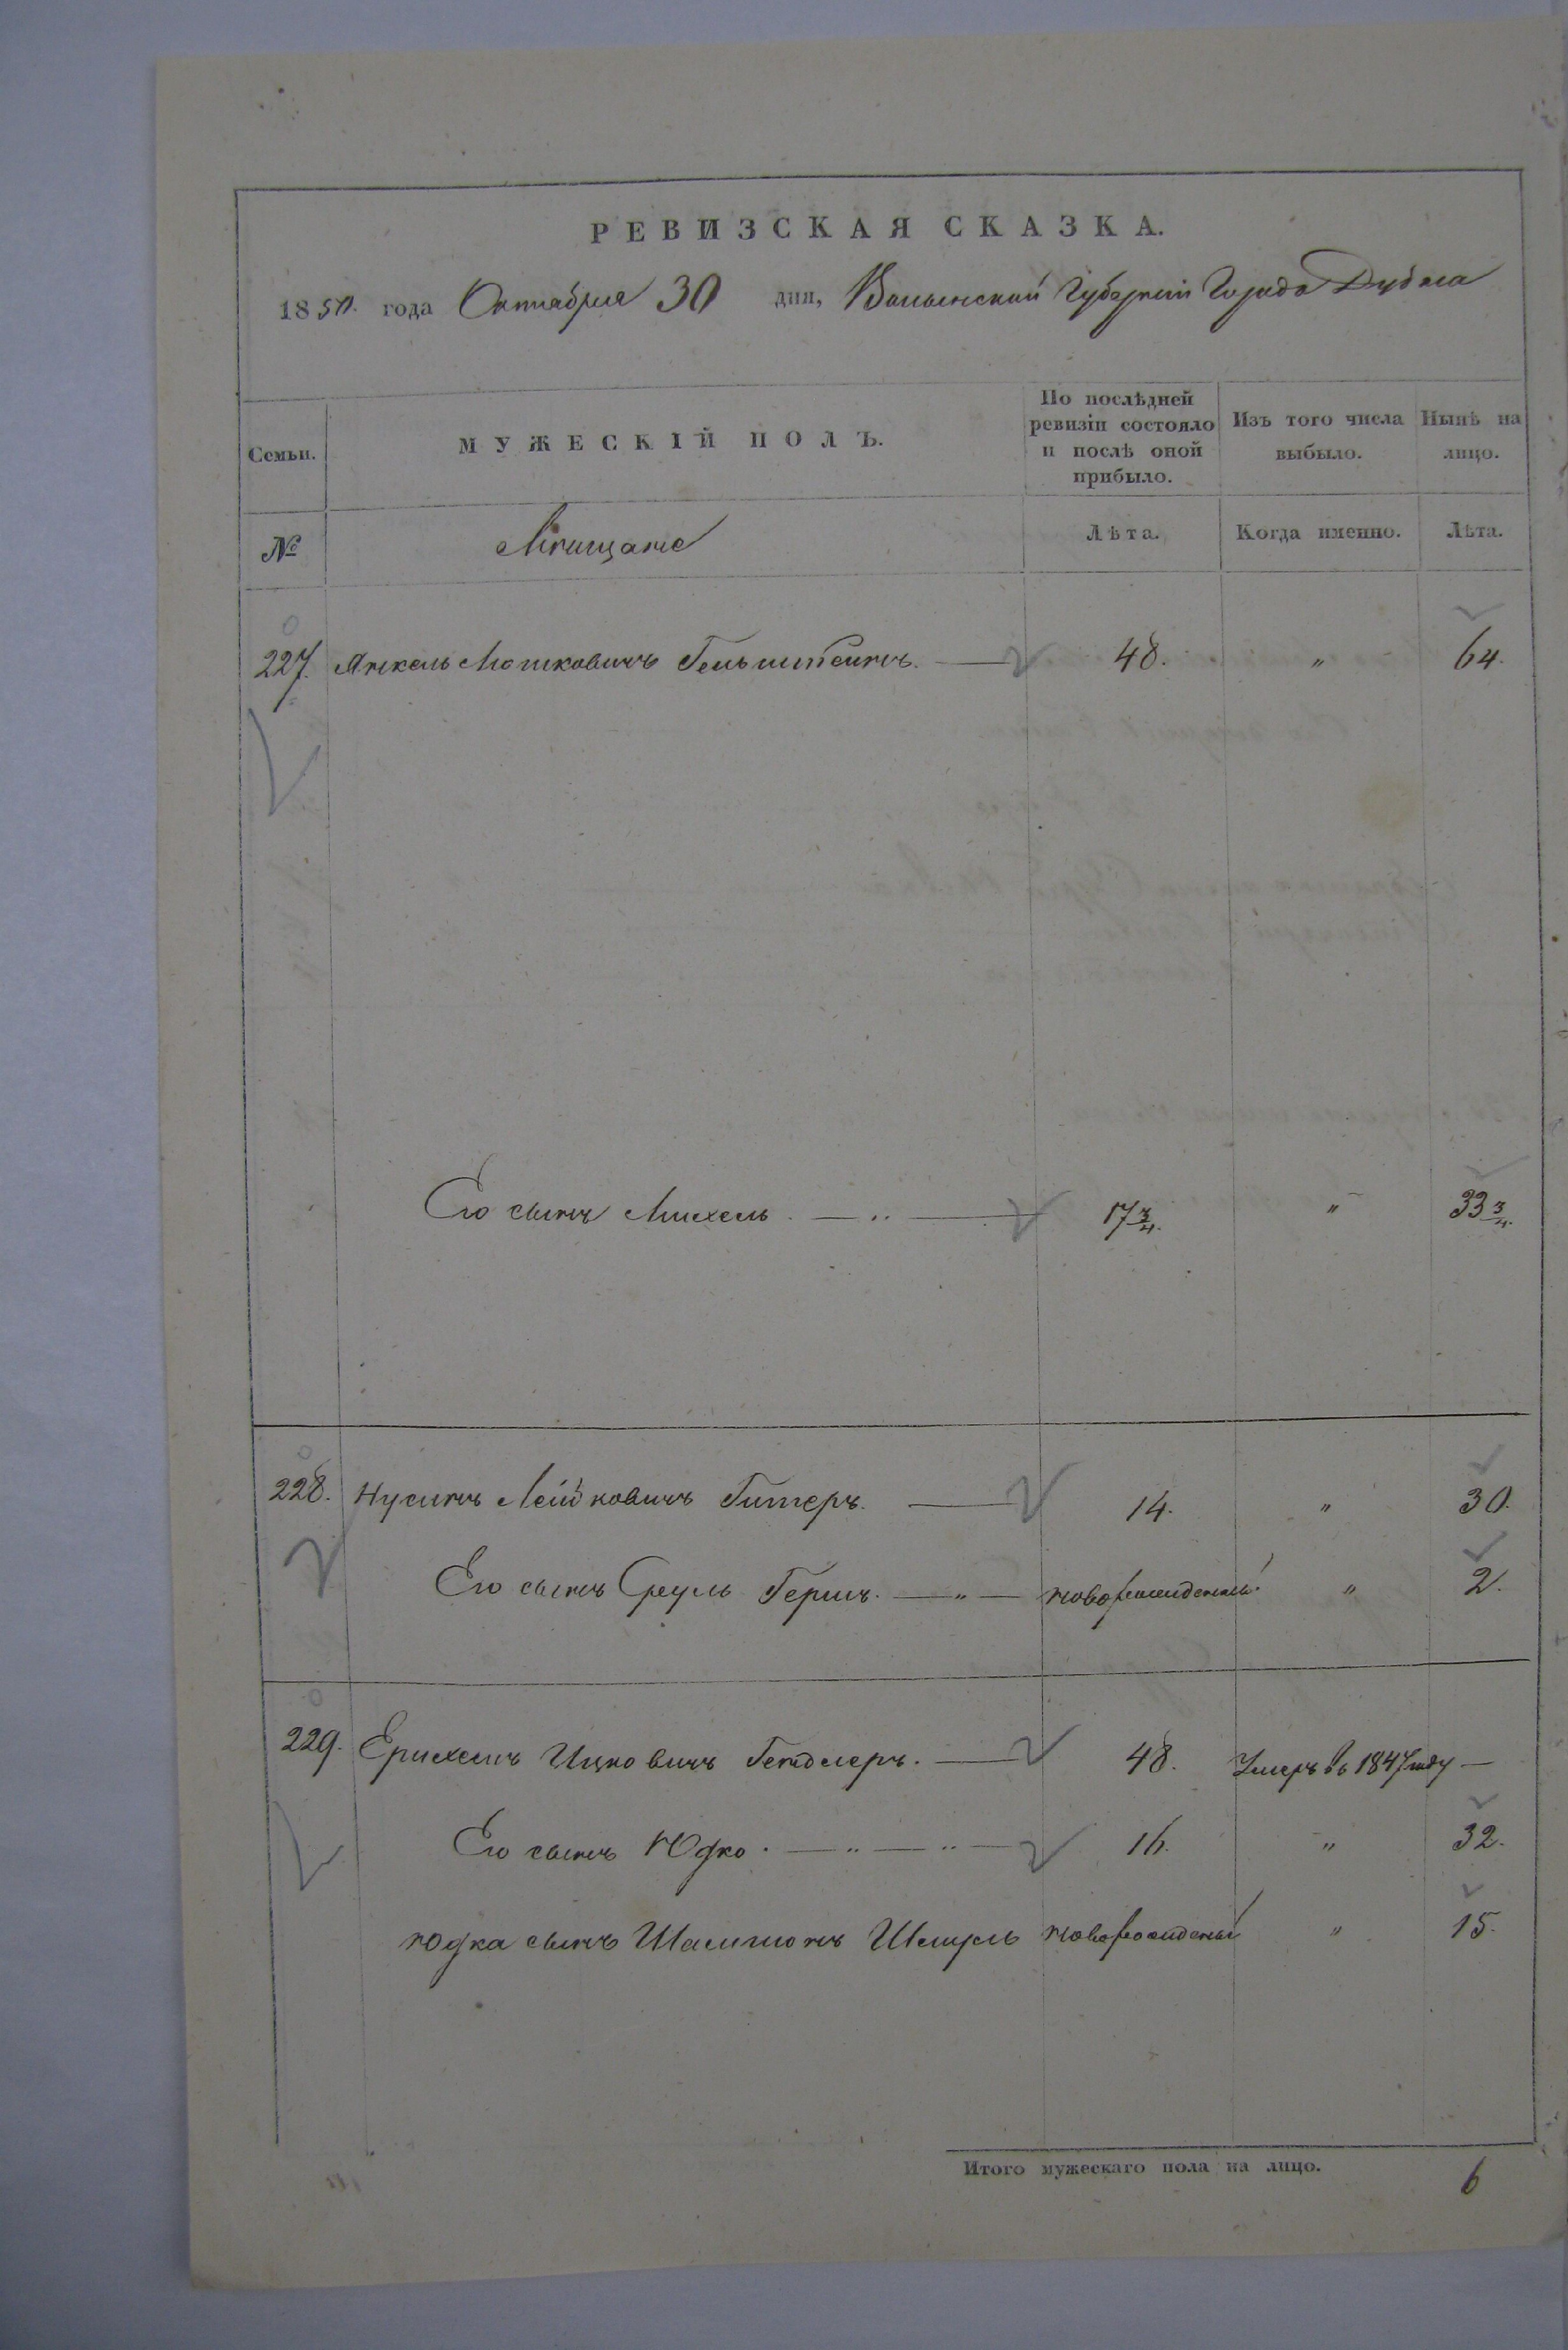 РЕВИЗСКАЯ СКАЗКА.
1850. года Октября 30 дня, Волынской Губернии Города Дубна
Семьи. МУЖЕСКІЙ ПОЛЪ. По послѣдней ревизіи состояло и послѣ оной прибыло. Изъ того числа выбыло. Нынѣ на лицо.
№ Мѣщане Лѣта. Когда именно. Лѣта.
227. Янкель Мошковичъ Гельштейнъ. — 48. „ 64.
Его сынъ Михель — „ — 17 3/4. „ 33 3/4.
228. Нусинъ Лейбковичъ Гитеръ. — 14. „ 30.
Его сынъ Сруль Гершъ. — „ — новорожденный. „ 2.
229. Ерихемъ Ицковичъ Гендлеръ. — 48. Умеръ въ 1847 году —
Его сынъ Юдко. — „ — „ — 16. „ 32.
Юдка сынъ Шамшонъ Шмуль новорожденный „ 15.
Итого мужескаго пола на лицо. 6